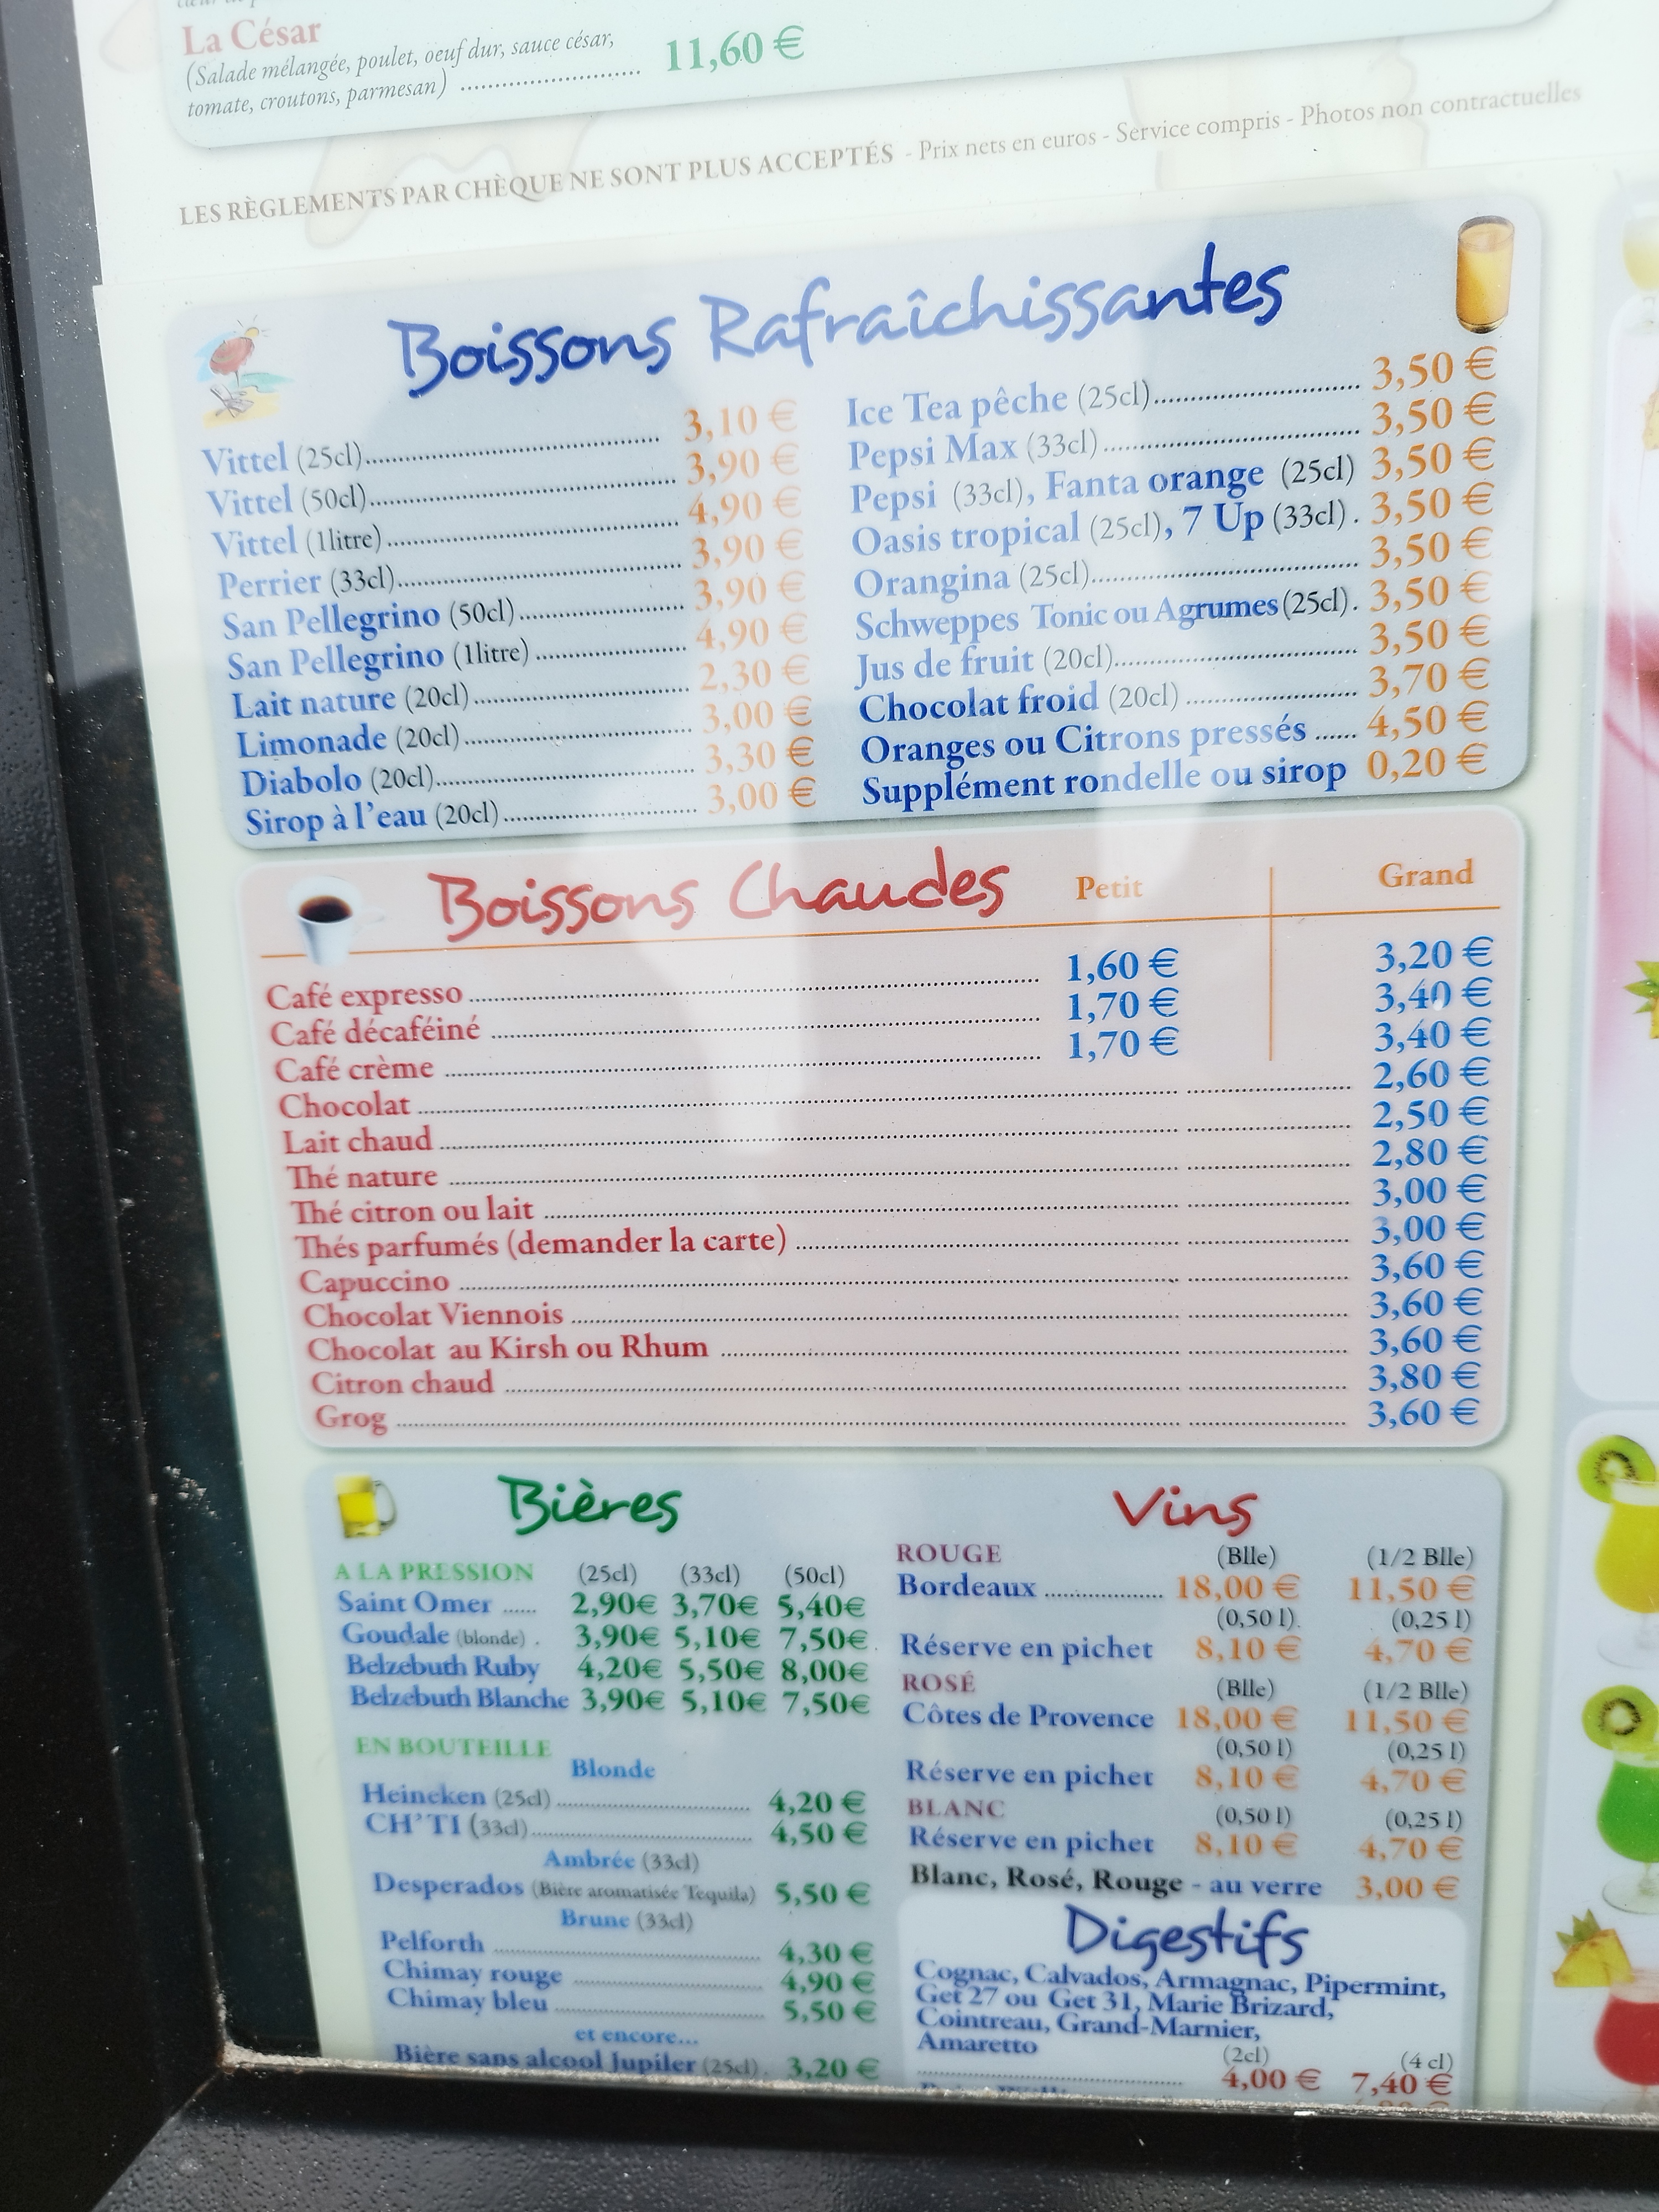 La César
(Salade mélangée, poulet, oeuf dur, sauce césar,
tomate, croutons, parmesan) ........ 11,60 €
LES RÈGLEMENTS PAR CHÈQUE NE SONT PLUS ACCEPTÉS - Prix nets en euros - Service compris - Photos non contractuelles
Boissons Rafraîchissantes
Vittel (25cl) ........ 3,10 €
Vittel (50cl) ........ 3,90 €
Vittel (1litre) ........ 4,90 €
Perrier (33cl) ........ 3,90 €
San Pellegrino (50cl) ........ 3,90 €
San Pellegrino (1litre) ........ 4,90 €
Lait nature (20cl) ........ 2,30 €
Limonade (20cl) ........ 3,00 €
Diabolo (20cl) ........ 3,30 €
Sirop à l'eau (20cl) ........ 3,00 €
Ice Tea pêche (25cl) ........ 3,50 €
Pepsi Max (33cl) ........ 3,50 €
Pepsi (33cl), Fanta orange (25cl) 3,50 €
Oasis tropical (25cl), 7 Up (33cl) . 3,50 €
Orangina (25cl) ........ 3,50 €
Schweppes Tonic ou Agrumes (25cl) . 3,50 €
Jus de fruit (20cl) ........ 3,50 €
Chocolat froid (20cl) ........ 3,70 €
Oranges ou Citrons pressés ...... 4,50 €
Supplément rondelle ou sirop 0,20 €
Boissons Chaudes Petit Grand
Café expresso ........ 1,60 € 3,20 €
Café décaféiné ........ 1,70 € 3,40 €
Café crème ........ 1,70 € 3,40 €
Chocolat ........ 2,60 €
Lait chaud ........ 2,50 €
Thé nature ........ 2,80 €
Thé citron ou lait ........ 3,00 €
Thés parfumés (demander la carte) ........ 3,00 €
Capuccino ........ 3,60 €
Chocolat Viennois ........ 3,60 €
Chocolat au Kirsh ou Rhum ........ 3,60 €
Citron chaud ........ 3,80 €
Grog ........ 3,60 €
Bières
A LA PRESSION (25cl) (33cl) (50cl)
Saint Omer ...... 2,90€ 3,70€ 5,40€
Goudale (blonde) . 3,90€ 5,10€ 7,50€
Belzebuth Ruby 4,20€ 5,50€ 8,00€
Belzebuth Blanche 3,90€ 5,10€ 7,50€
EN BOUTEILLE
Blonde
Heineken (25cl) ........ 4,20 €
CH'TI (33cl) ........ 4,50 €
Ambrée (33cl)
Desperados (Bière aromatisée Tequila) 5,50 €
Brune (33cl)
Pelforth ........ 4,30 €
Chimay rouge ........ 4,90 €
Chimay bleu ........ 5,50 €
et encore...
Bière sans alcool Jupiler (25cl) . 3,20 €
Vins
ROUGE (Blle) (1/2 Blle)
Bordeaux ........ 18,00 € 11,50 €
(0,50 l). (0,25 l)
Réserve en pichet 8,10 € 4,70 €
ROSÉ (Blle) (1/2 Blle)
Côtes de Provence 18,00 € 11,50 €
(0,50 l) (0,25 l)
Réserve en pichet 8,10 € 4,70 €
BLANC (0,50 l) (0,25 l)
Réserve en pichet 8,10 € 4,70 €
Blanc, Rosé, Rouge - au verre 3,00 €
Digestifs
Cognac, Calvados, Armagnac, Pipermint,
Get 27 ou Get 31, Marie Brizard,
Cointreau, Grand-Marnier,
Amaretto (2cl) (4 cl)
........ 4,00 € 7,40 €